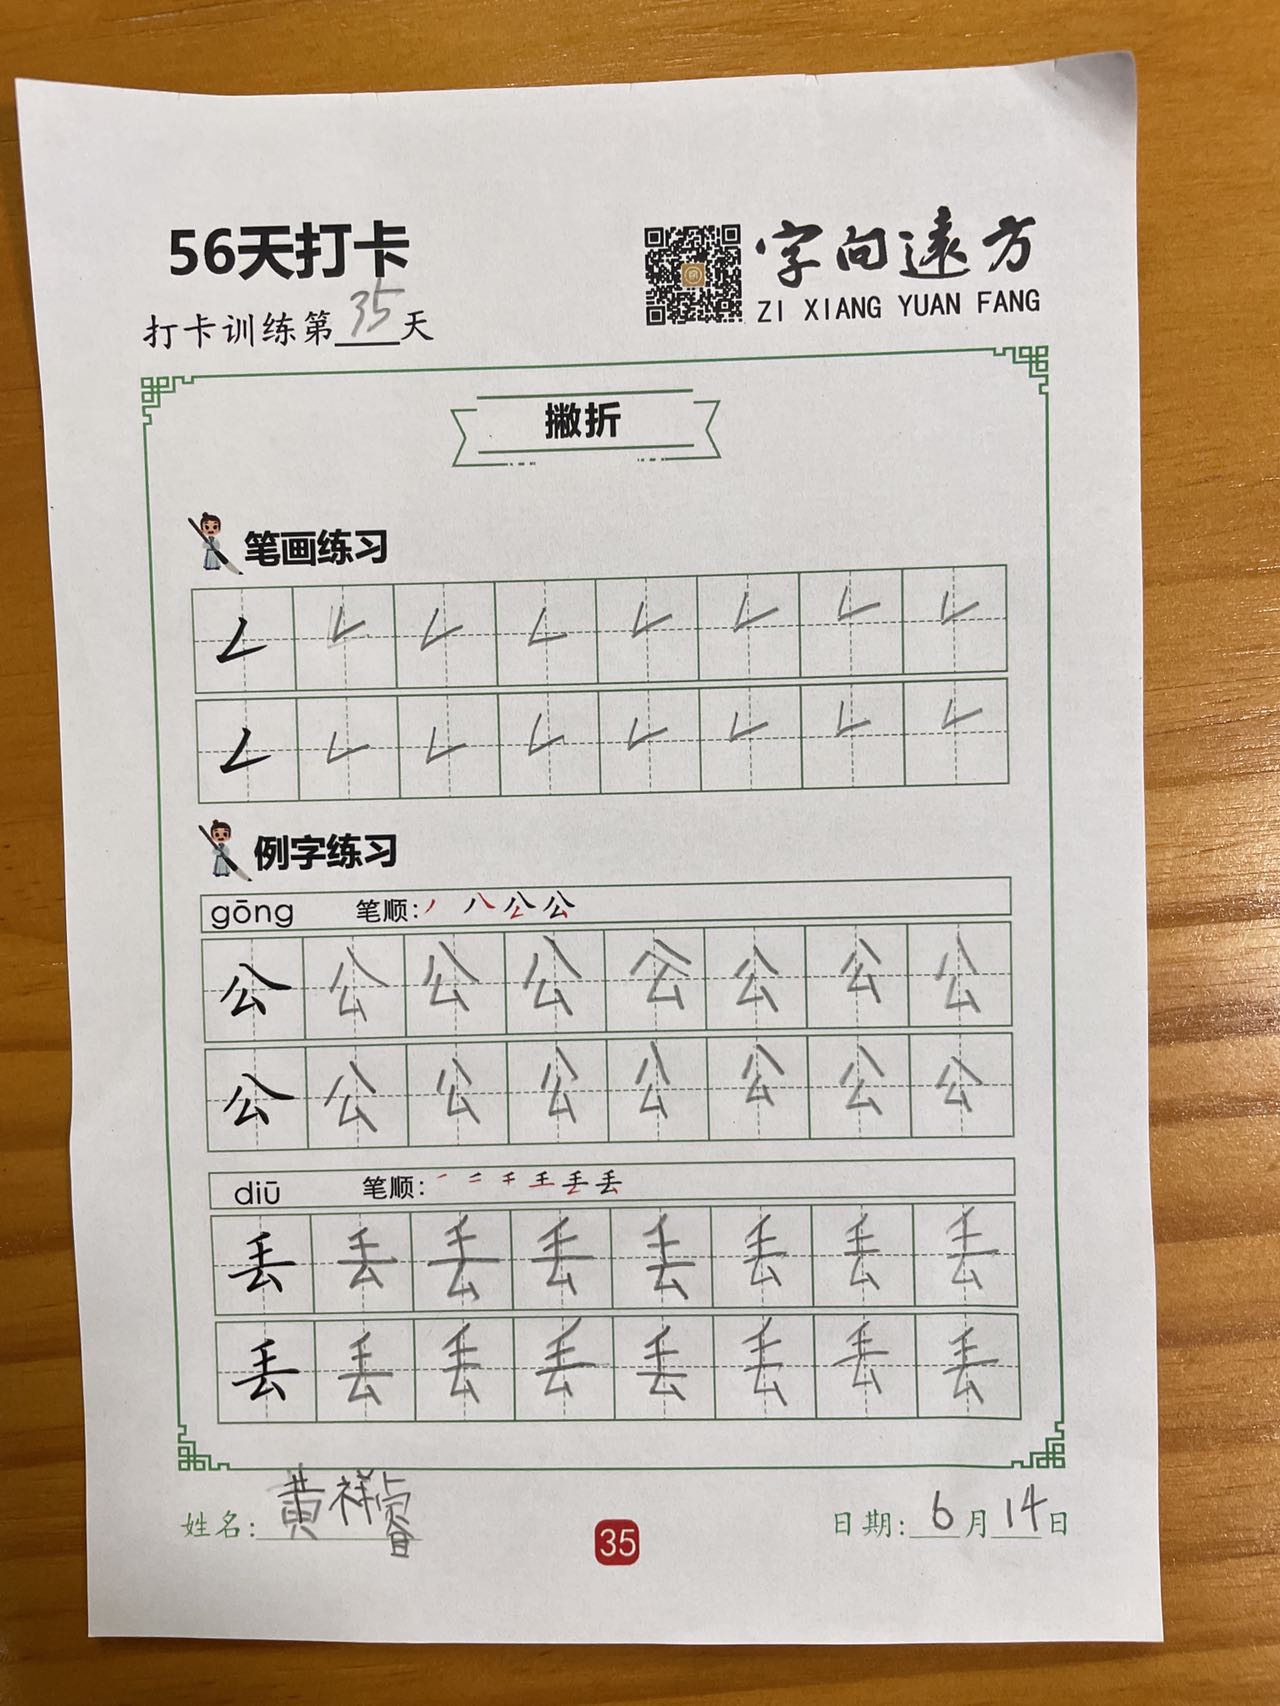 56天打卡
字向遠方
ZI XIANG YUAN FANG
打卡训练第35天
撇折
笔画练习
例字练习
gōng 笔顺:
公 公 公 公 公 公 公 公
公 公 公 公 公 公 公 公
diū 笔顺:
丢 丢 丢 丢 丢 丢 丢 丢
丢 丢 丢 丢 丢 丢 丢 丢
姓名: 黄祥睿
35
日期: 6月14日